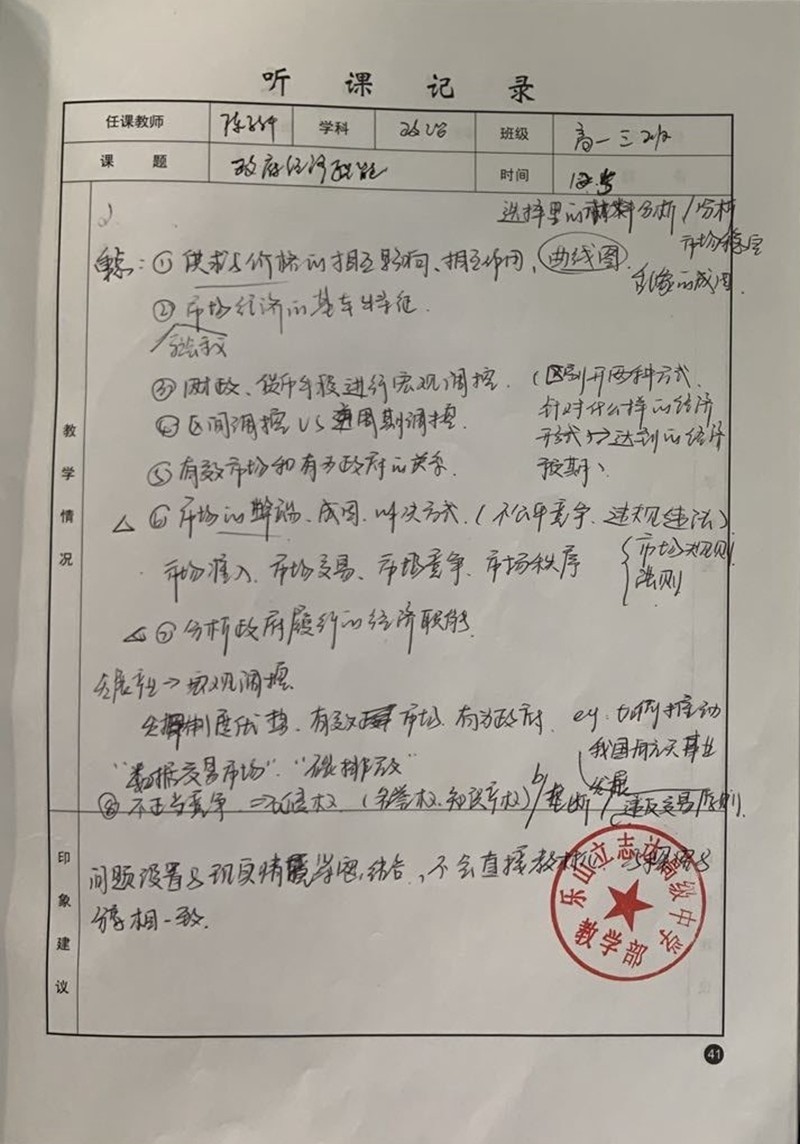 听课记录
任课教师 学科 政治 班级 高一三班
课题 政府经济职能 时间
选择里的材料分析/分析
重点：① 供求与价格的相互影响、相互作用、曲线图
市场
乱象的成因.
② 市场经济的基本特征.
③ 财政、货币手段进行宏观调控. (区别开两种方式、
④ 区间调控 VS 逆周期调控. 针对什么样的经济
形式 达到的经济
⑤ 有效市场和有为政府的关系. 预期)
△ ⑥ 市场的弊端、成因、解决方式. (不公平竞争、违规违法)
市场准入、市场交易、市场竞争、市场秩序 {市场规则
法则
△ ⑦ 分析政府履行的经济职能.
→ 宏观调控.
制度优势、有效市场、有为政府. eg. 如何推动
我国航天事业
"数据交易市场"."碳排放" 发展
⑧ 不正当竞争 侵权 (名誉权.知识产权) 垄断 违反交易原则
教学情况
问题设置与现实情景紧密结合, 不会直接
相一致.
印象建议
乐山立志达高级中学
教学部
41